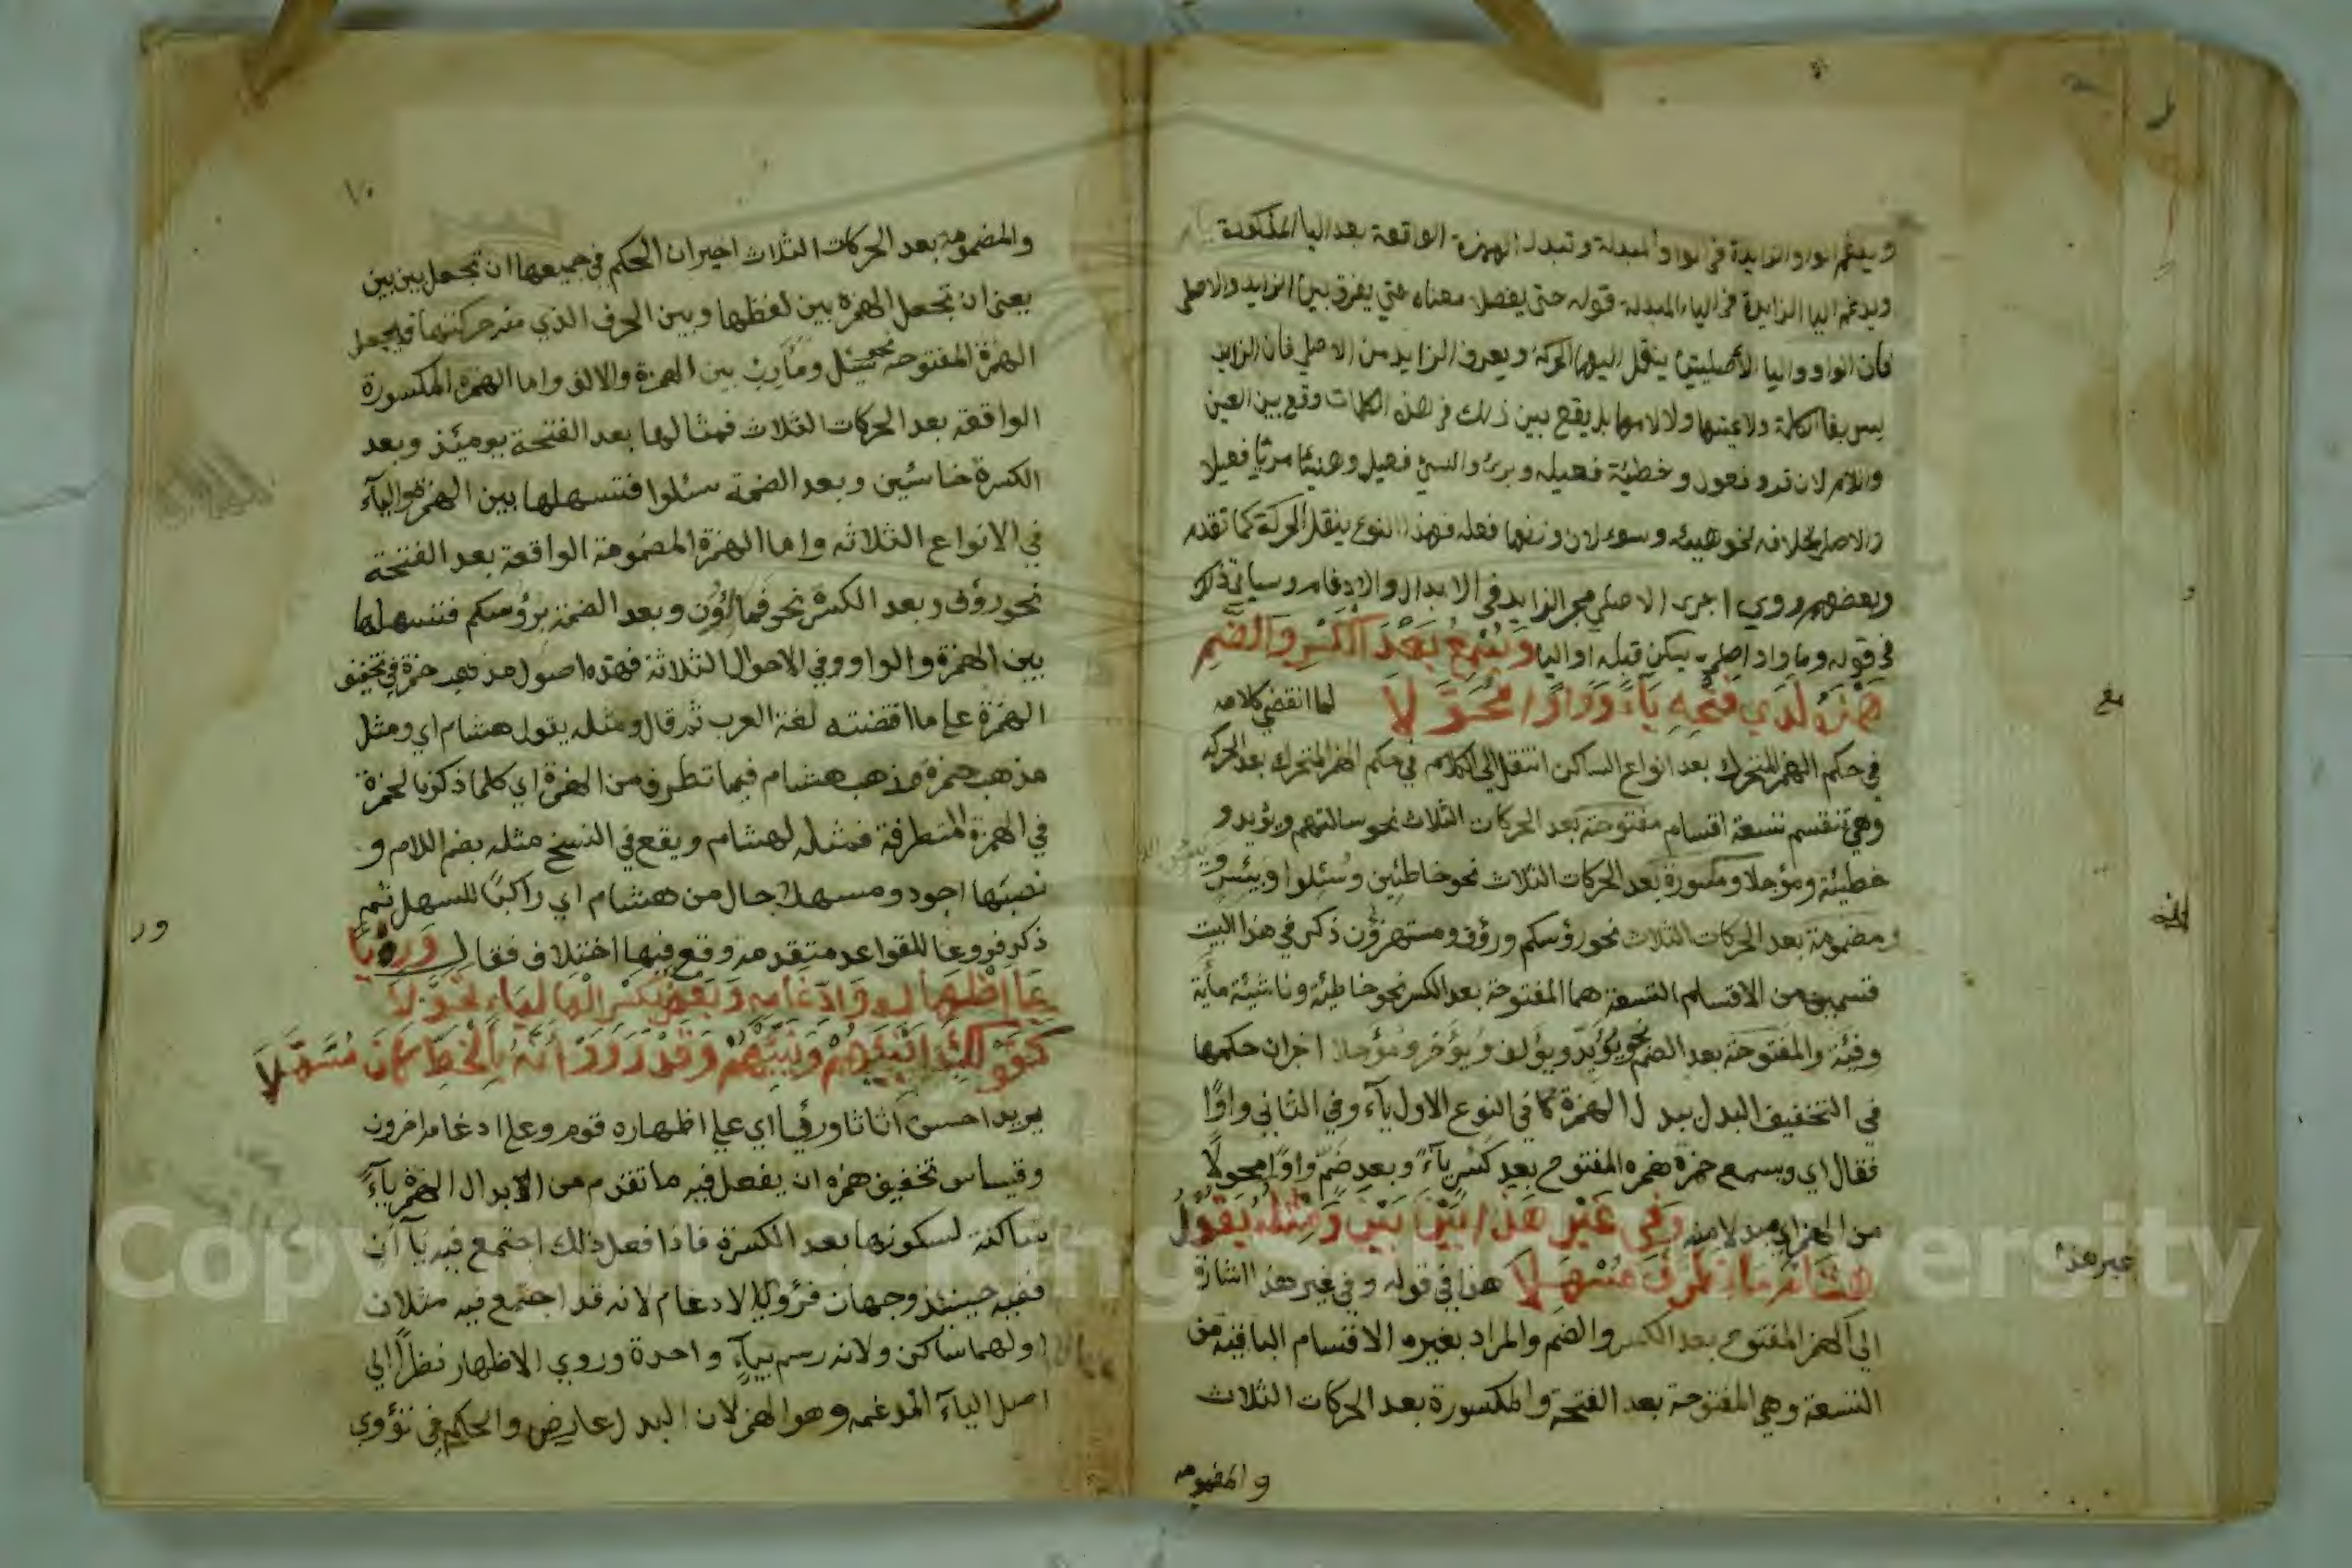 ويدغم الواو الزايدة في الواو المبدلة وتبدل الهمزة الواقعة بعد اليا المذكورة ياء
ويدغم اليا الزايدة في الياء المبدلة قوله حتى يفصل معناه حتى يفرق بين الزايد والاصلي
فان الواو واليا الأصليتين ينقل اليهما الحركة ويعرف الزايد من الاصلي فان الزايد
ليس بفا الكلمة ولا عينها ولا لامها بل يقع بين ذلك في هذه الكلمات وقع بين العين
واللام لان قروء فعول وخطيئة فعيله وبرئ والنسئ فعيل وهنيئا مريئا فعيلا
والاصل بخلافه نحو هيئه وسوء لان وزنها فعله فهذا النوع ينقل الحركة كما تقدم
وبعضهم روي اجرى الاصلي مجر الزايد في الابدال والادغام وسياتي ذلك
في قوله وما واو اصلي يسكن قبله او اليا ويسمع بعد الكسر والضم
همزه لدي فتحه ياء وواوا محولا لما انقضي كلامه
في حكم الهمز المتحرك بعد انواع الساكن انتقل الي الكلام في حكم الهمز المتحرك بعد الحركه
وهي تنقسم تسعة اقسام مفتوحة بعد الحركات الثلاث نحو سالتهم ويؤيد و
خطيئة ومؤجلا ومكسورة بعد الحركات الثلاث نحو خاطئين وسئلوا ويئس و
ومضمومة بعد الحركات الثلاث نحو رؤسكم ورؤف ومستهزؤن ذكر في هذا البيت
قسمين من الاقسام التسعة هما المفتوحة بعد الكسر نحو خاطئة وناشئة مأية
وفئة والمفتوحة بعد الضم نحو يؤيد ويؤلف ويؤخر ومؤجلا اخران حكمها
في التخفيف البدل يبدل الهمزة كما في النوع الاول يآء وفي الثاني واوًا
فقال اي ويسمع حمزة همزه المفتوح بعد كسر يآءً وبعد ضم واوًا محولًا
من الهمز اي مبدلا منه وفي غير هذا بين بين ومثله يقول
هشام ما تطرف مسهلا هذا في قوله وفي غير هذا اشارة
الي الهمز المفتوح بعد الكسر والضم والمراد بغيره الاقسام الباقية من
التسعة وهي المفتوحة بعد الفتحة والمكسورة بعد الحركات الثلاث
والمضمومه
غير هذا
١٠
والمضمومة بعد الحركات الثلاث اخبر ان الحكم في جميعها ان تجعل بين بين
يعني ان تجعل الهمزة بين لفظها وبين الحرف الذي منه حركتها فيجعل
الهمزة المفتوحة نحو سئل ومآرب بين الهمزة والالف واما الهمزة المكسورة
الواقعة بعد الحركات الثلاث فمثالها بعد الفتحة يومئذ وبعد
الكسرة خاسئين وبعد الضمة سئلوا فتسهلها بين الهمزة واليآء
في الانواع الثلاثه واما الهمزة المضمومة الواقعة بعد الفتحة
نحو رؤف وبعد الكسرة نحو فمالؤن وبعد الضمة برؤسكم فتسهلها
بين الهمزة والواو وفي الاحوال الثلاثة فهذه اصول مذهب حمزة في تخفيف
الهمزة علي ما اقتضته لغة العرب ثم قال ومثله يقول هشام اي ومثل
مذهب حمزة مذهب هشام فيما تطرف من الهمزة اي كلما ذكرنا لحمزة
في الهمزة المتطرفة فمثله لهشام ويقع في النسخ مثله بضم اللام و
نصبها اجود ومسهلا حال من هشام اي راكبًا للسهل ثم
ذكر فروعا للقواعد متقدمة وقع فيها اختلاف فقال ورءيا
علي اظهاره وادغامه وبعض بكسر الها لياء تحولا
كقولك انبئهم ونبئهم وقد رووا انه بالخط كان مسهلا
يريد احسن اثاثا ورئيا اي علي اظهاره قوم وعلي ادغام اخرون
وقياس تخفيف همزه ان يفعل فيه ما تقدم من الابدال الهمزة يآءً
ساكنة لسكونها بعد الكسرة فاذا فعل ذلك اجتمع فيه يآ آن
ففيه حينئذ وجهان فروي الادغام لانه قد اجتمع فيه مثلان
اولهما ساكن ولانه رسم بيآءٍ واحدة وروي الاظهار نظرًا الي
اصل اليآء المدغمه وهو الهمز لان البدل عارض والحكم في تؤوي
Copyright © King Saud University